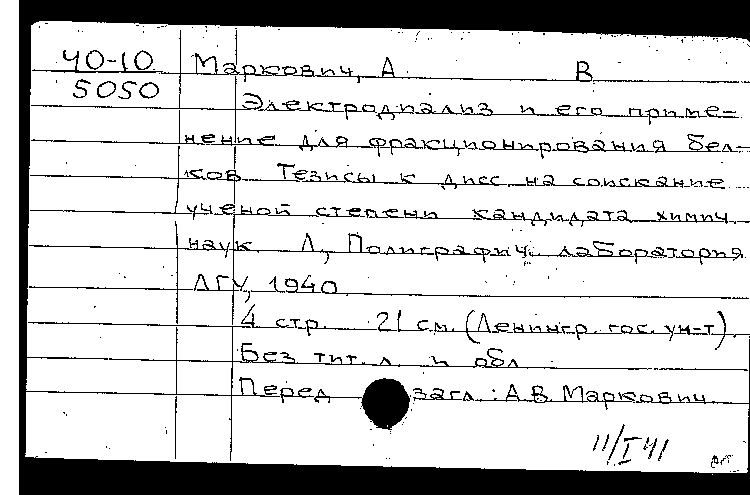 40-10
5050
Маркович, А. В
Электродиализ и его приме=
нение для фракционирования бел-
ков. Тезисы к дисс. на соискание
ученой степени кандидата химич.
наук. Л., Полиграфич. лаборатория
ЛГУ, 1940.
4 стр. 21 см. (Ленингр. гос. ун=т).
Без тит. л. и обл.
Перед загл.: А.В. Маркович.
11/I 41